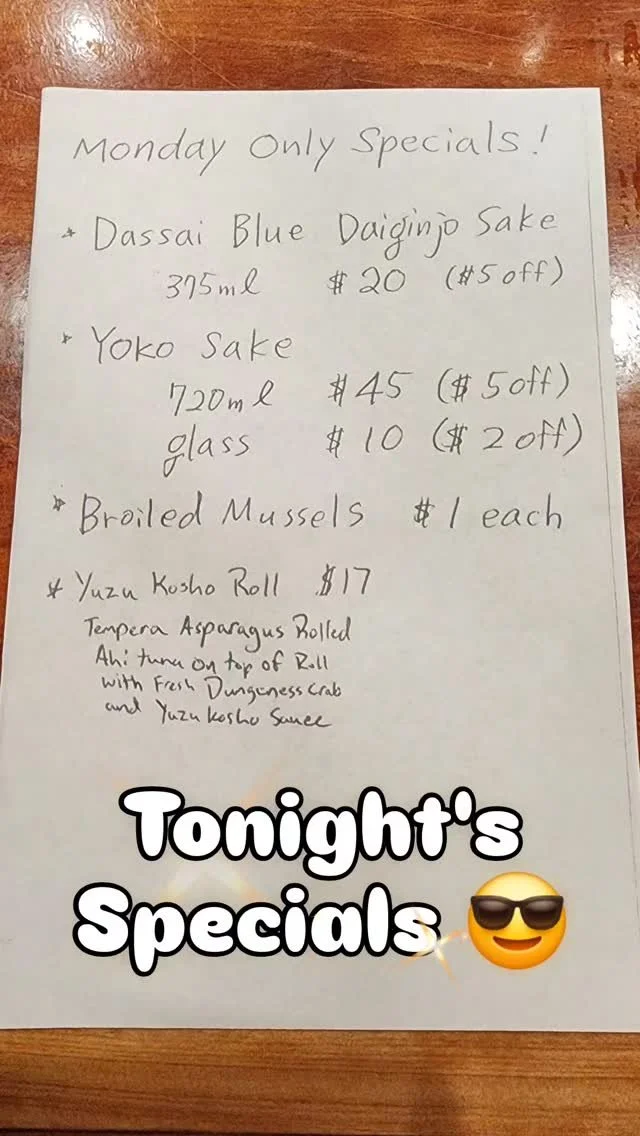 Monday Only Specials!
* Dassai Blue Daiginjo Sake
375ml $20 ($5 off)
* Yoko Sake
720ml $45 ($5off)
glass $10 ($2 off)
* Broiled Mussels $1 each
* Yuzu Kosho Roll $17
Tempera Asparagus Rolled
Ahi tuna on top of Roll
with Fresh Dungeness Crab
and Yuzu Kosho Sauce
Tonight's
Specials 😎